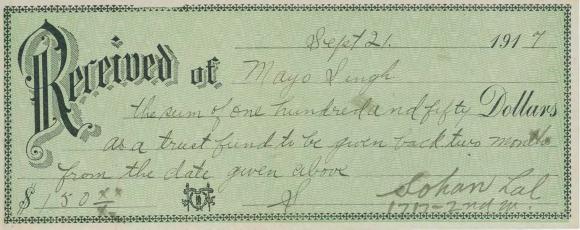 Sept 21. 1917
Received of Mayo Singh
the sum of one hundred and fifty Dollars
as a trust fund to be given back two months
from the date given above
$ 150 xx/x
Sohan Lal
1717-2nd